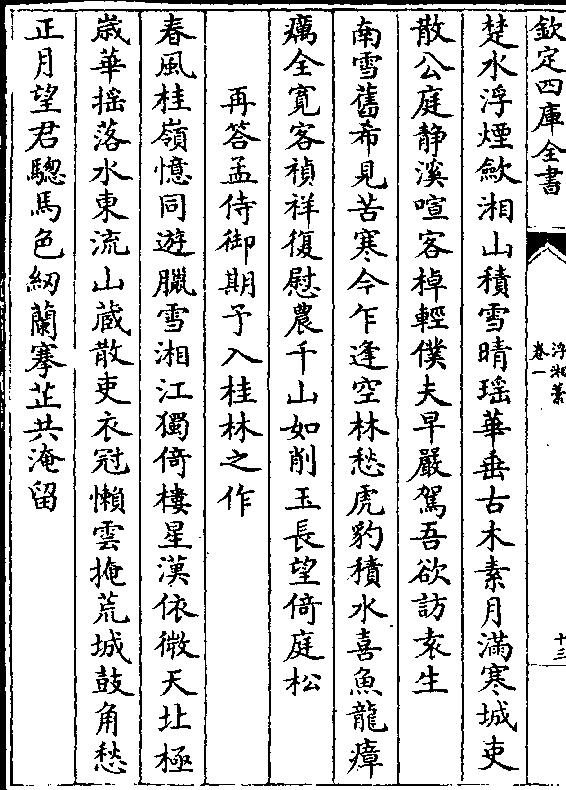 欽定四庫全書
浮湘藁
卷一
十三
楚水浮煙歛湘山積雪晴瑶華垂古木素月滿寒城吏
散公庭静溪喧客棹輕僕夫早嚴駕吾欲訪袁生
南雪舊希見苦寒今乍逢空林愁虎豹積水喜魚龍瘴
癘全寛客禎祥復慰農千山如削玉長望倚庭松
再答孟侍御期予入桂林之作
春風桂嶺憶同遊臘雪湘江獨倚樓星漢依微天北極
歳華揺落水東流山蔵散吏衣冠懶雲掩荒城鼓角愁
正月望君驄馬色紉蘭搴芷共淹留